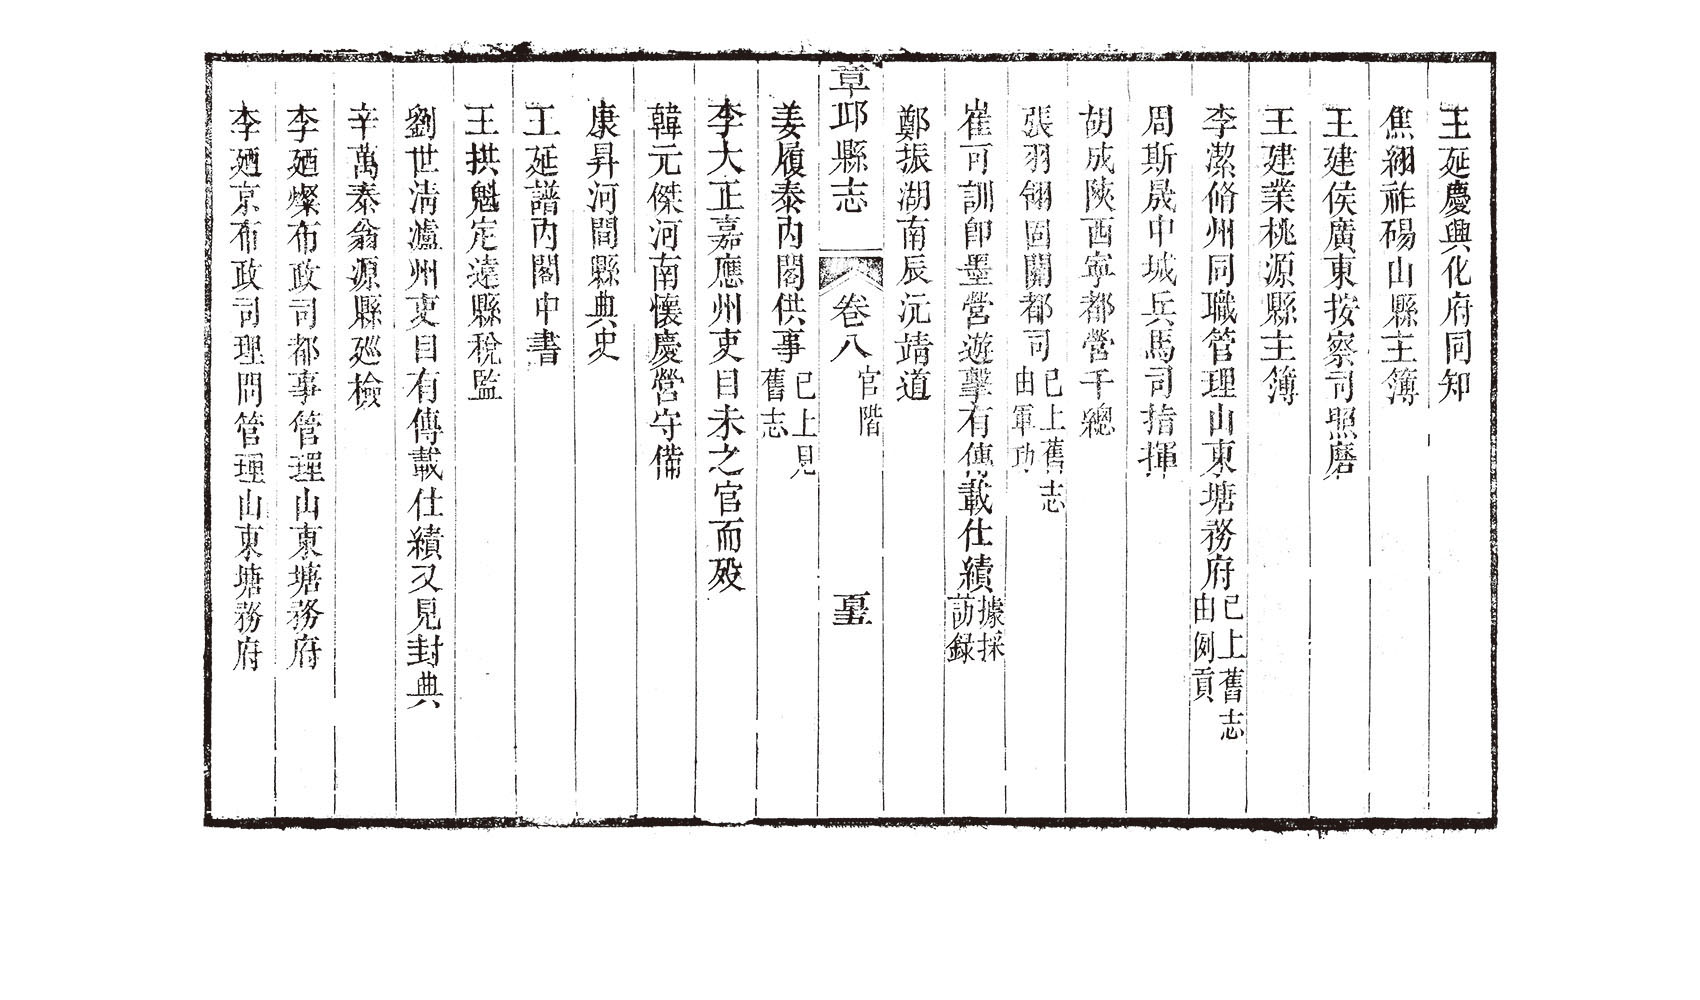 王延慶興化府同知
焦翊祚碭山縣主簿
王建侯廣東按察司照磨
王建業桃源縣主簿
李潔脩州同職管理山東塘務府已上舊志由例貢
周斯晟中城兵馬司指揮
胡成陝西寧都營千總
張羽翎固關都司已上舊志由軍功
崔可訓卽墨營遊擊有傳載仕績據採訪録
鄭振湖南辰沅靖道
章邱縣志 卷八 官階
姜履泰內閣供事已上見舊志
李大正嘉應州吏目未之官而歿
韓元傑河南懷慶營守備
康昇河間縣典史
王延譜內閣中書
王拱魁定遠縣稅監
劉世清瀘州吏目有傳載仕績又見封典
辛萬泰翁源縣巡檢
李廼燦布政司都事管理山東塘務府
李廼京布政司理問管理山東塘務府